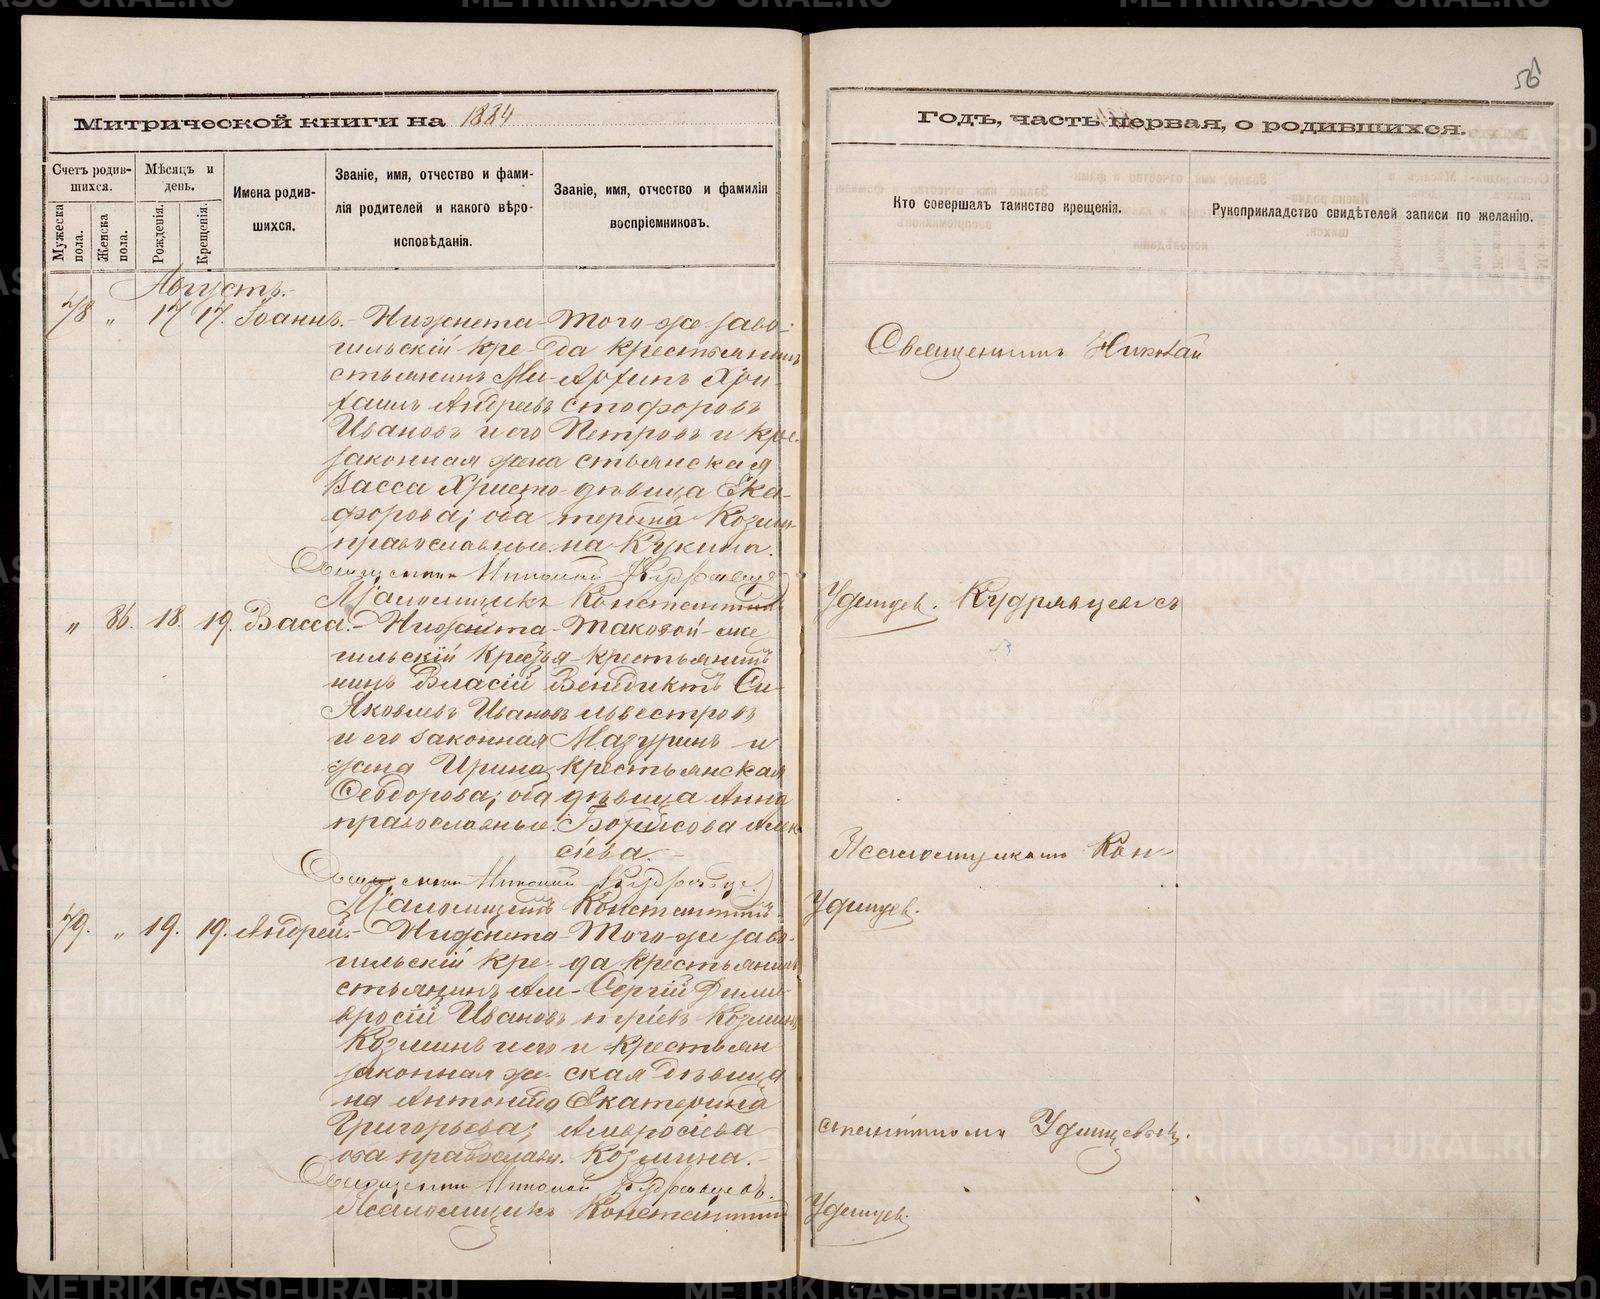 56
Митрической книги на 1884
Годъ, часть первая, о родившихся.
Счетъ родив-
шихся.
Мужеска
пола.
Женска
пола.
Мѣсяцъ и
день.
Рожденія.
Крещенія.
Имена родив-
шихся.
Званіе, имя, отчество и фами-
лія родителей и какого вѣро-
исповѣданія.
Званіе, имя, отчество и фамилія
воспріемниковъ.
Кто совершалъ таинство крещенія.
Рукоприкладство свидѣтелей записи по желанію.
Августъ.
78 " 17 17. Іоаннъ.
Нижнета-
гильскій кре-
стьянинъ Ми-
хаилъ Андреевъ
Ивановъ и его
законная жена
Васса Христо-
форова; оба
православные.
Того-же заво-
да крестьянинъ
Хри-
стофоровъ
Петровъ и кре-
стьянская
дѣвица Ека-
терина Козми-
на Кукина.
Священникъ Николай
Кудрявцевъ
Священникъ Николай Кудрявцевъ
Псаломщикъ Константинъ Удинцев.
" 86. 18. 19. Васса.
Нижнета-
гильскій кресть-
нинъ Власій
Яковлевъ Ивановъ
и его законная
жена Ирина
Ѳеодорова; оба
православные.
Таковой-же
крестьянинъ
Венедиктъ Си-
львестровъ
Мазуринъ и
крестьянская
дѣвица Анна
Борисова Алек-
сіева.
Псаломщикомъ Кон-
Священникъ Николай Кудрявцев
Псаломщикъ Константинъ Удинцев.
79. " 19. 19. Андрей.
Нижнета-
гильскій кре-
стьянинъ Ам-
вросій Ивановъ
Козминъ и его
законная же-
на Антонида
Григорьева;
оба православн.
Того-же заво-
да крестьянинъ
Сергій Дими-
тріевъ Козминъ
и крестьян
ская дѣвица
Екатерина
Амвросіева
Козмина.
стантиномъ Удинцевымъ.
Священникъ Николай Кудрявцевъ.
Псаломщикъ Константинъ Удинцев.
METRIKI.GASO-URAL.RU